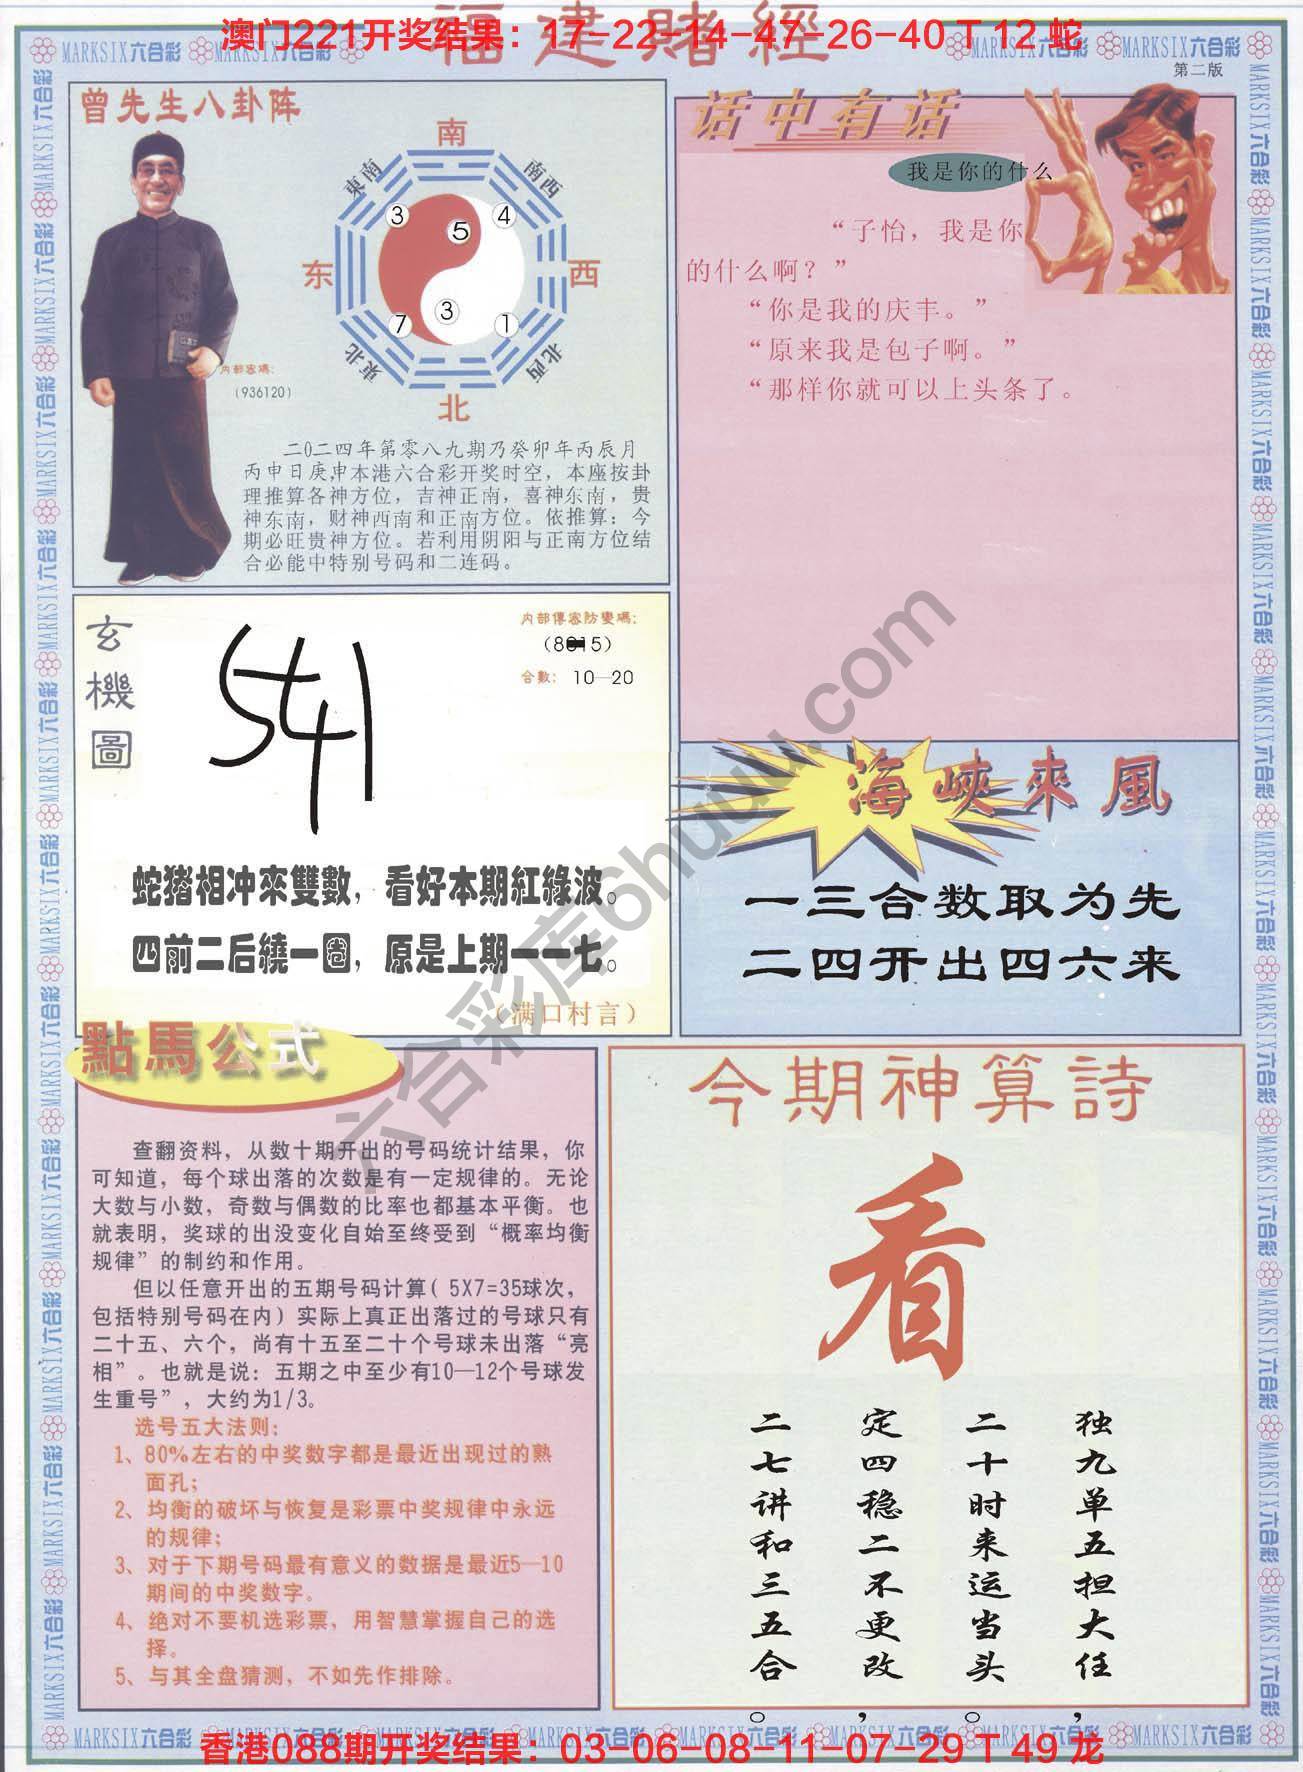 福建赌經
澳门221开奖结果：17-22-14-47-26-40 T 12 蛇
MARKSIX六合彩
第二版
曾先生八卦阵
南
東南
南西
3
4
5
东
西
3
7
1
東北
北西
北
内部密碼：
（936120）
二0二四年第零八九期乃癸卯年丙辰月
丙申日庚申本港六合彩开奖时空，本座按卦
理推算各神方位，吉神正南，喜神东南，贵
神东南，财神西南和正南方位。依推算：今
期必旺贵神方位。若利用阴阳与正南方位结
合必能中特别号码和二连码。
话中有话
我是你的什么
“子怡，我是你
的什么啊？”
“你是我的庆丰。”
“原来我是包子啊。”
“那样你就可以上头条了。
玄機圖
541
内部傳密防變碼：
合數：10—20
蛇猪相冲來雙數，看好本期紅綠波。
四前二后繞一圈，原是上期一一七。
（满口村言）
海峽來風
一三合数取为先
二四开出四六来
點馬公式
查翻资料，从数十期开出的号码统计结果，你
可知道，每个球出落的次数是有一定规律的。无论
大数与小数，奇数与偶数的比率也都基本平衡。也
就表明，奖球的出没变化自始至终受到“概率均衡
规律”的制约和作用。
但以任意开出的五期号码计算（5X7=35球次，
包括特别号码在内）实际上真正出落过的号球只有
二十五、六个，尚有十五至二十个号球未出落“亮
相”。也就是说：五期之中至少有10—12个号球发
生重号”，大约为1/3。
选号五大法则：
1、80%左右的中奖数字都是最近出现过的熟
面孔；
2、均衡的破坏与恢复是彩票中奖规律中永远
的规律；
3、对于下期号码最有意义的数据是最近5—10
期间的中奖数字。
4、绝对不要机选彩票，用智慧掌握自己的选
择。
5、与其全盘猜测，不如先作排除。
今期神算詩
看
独九单五担大任，
二十时来运当头。
定四稳二不更改，
二七讲和三五合。
六合彩库6huuu.com
香港088期开奖结果：03-06-08-11-07-29 T 49 龙